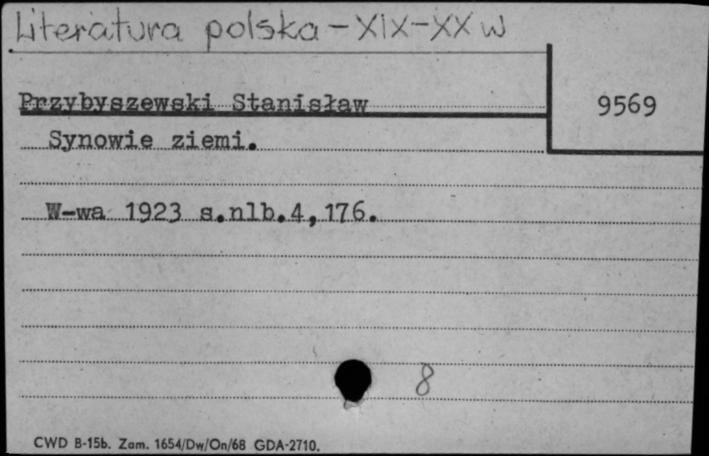 Literatura polska - XIX-XX w
Przybyszewski Stanisław
9569
Synowie ziemi.
W-wa 1923 s.nlb.4,176.
8
CWD B-15b. Zam. 1654/Dw/On/68 GDA-2710.